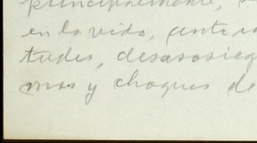 principalmente,
en la vida, ante
tudes, desasosieg
mas y choques de